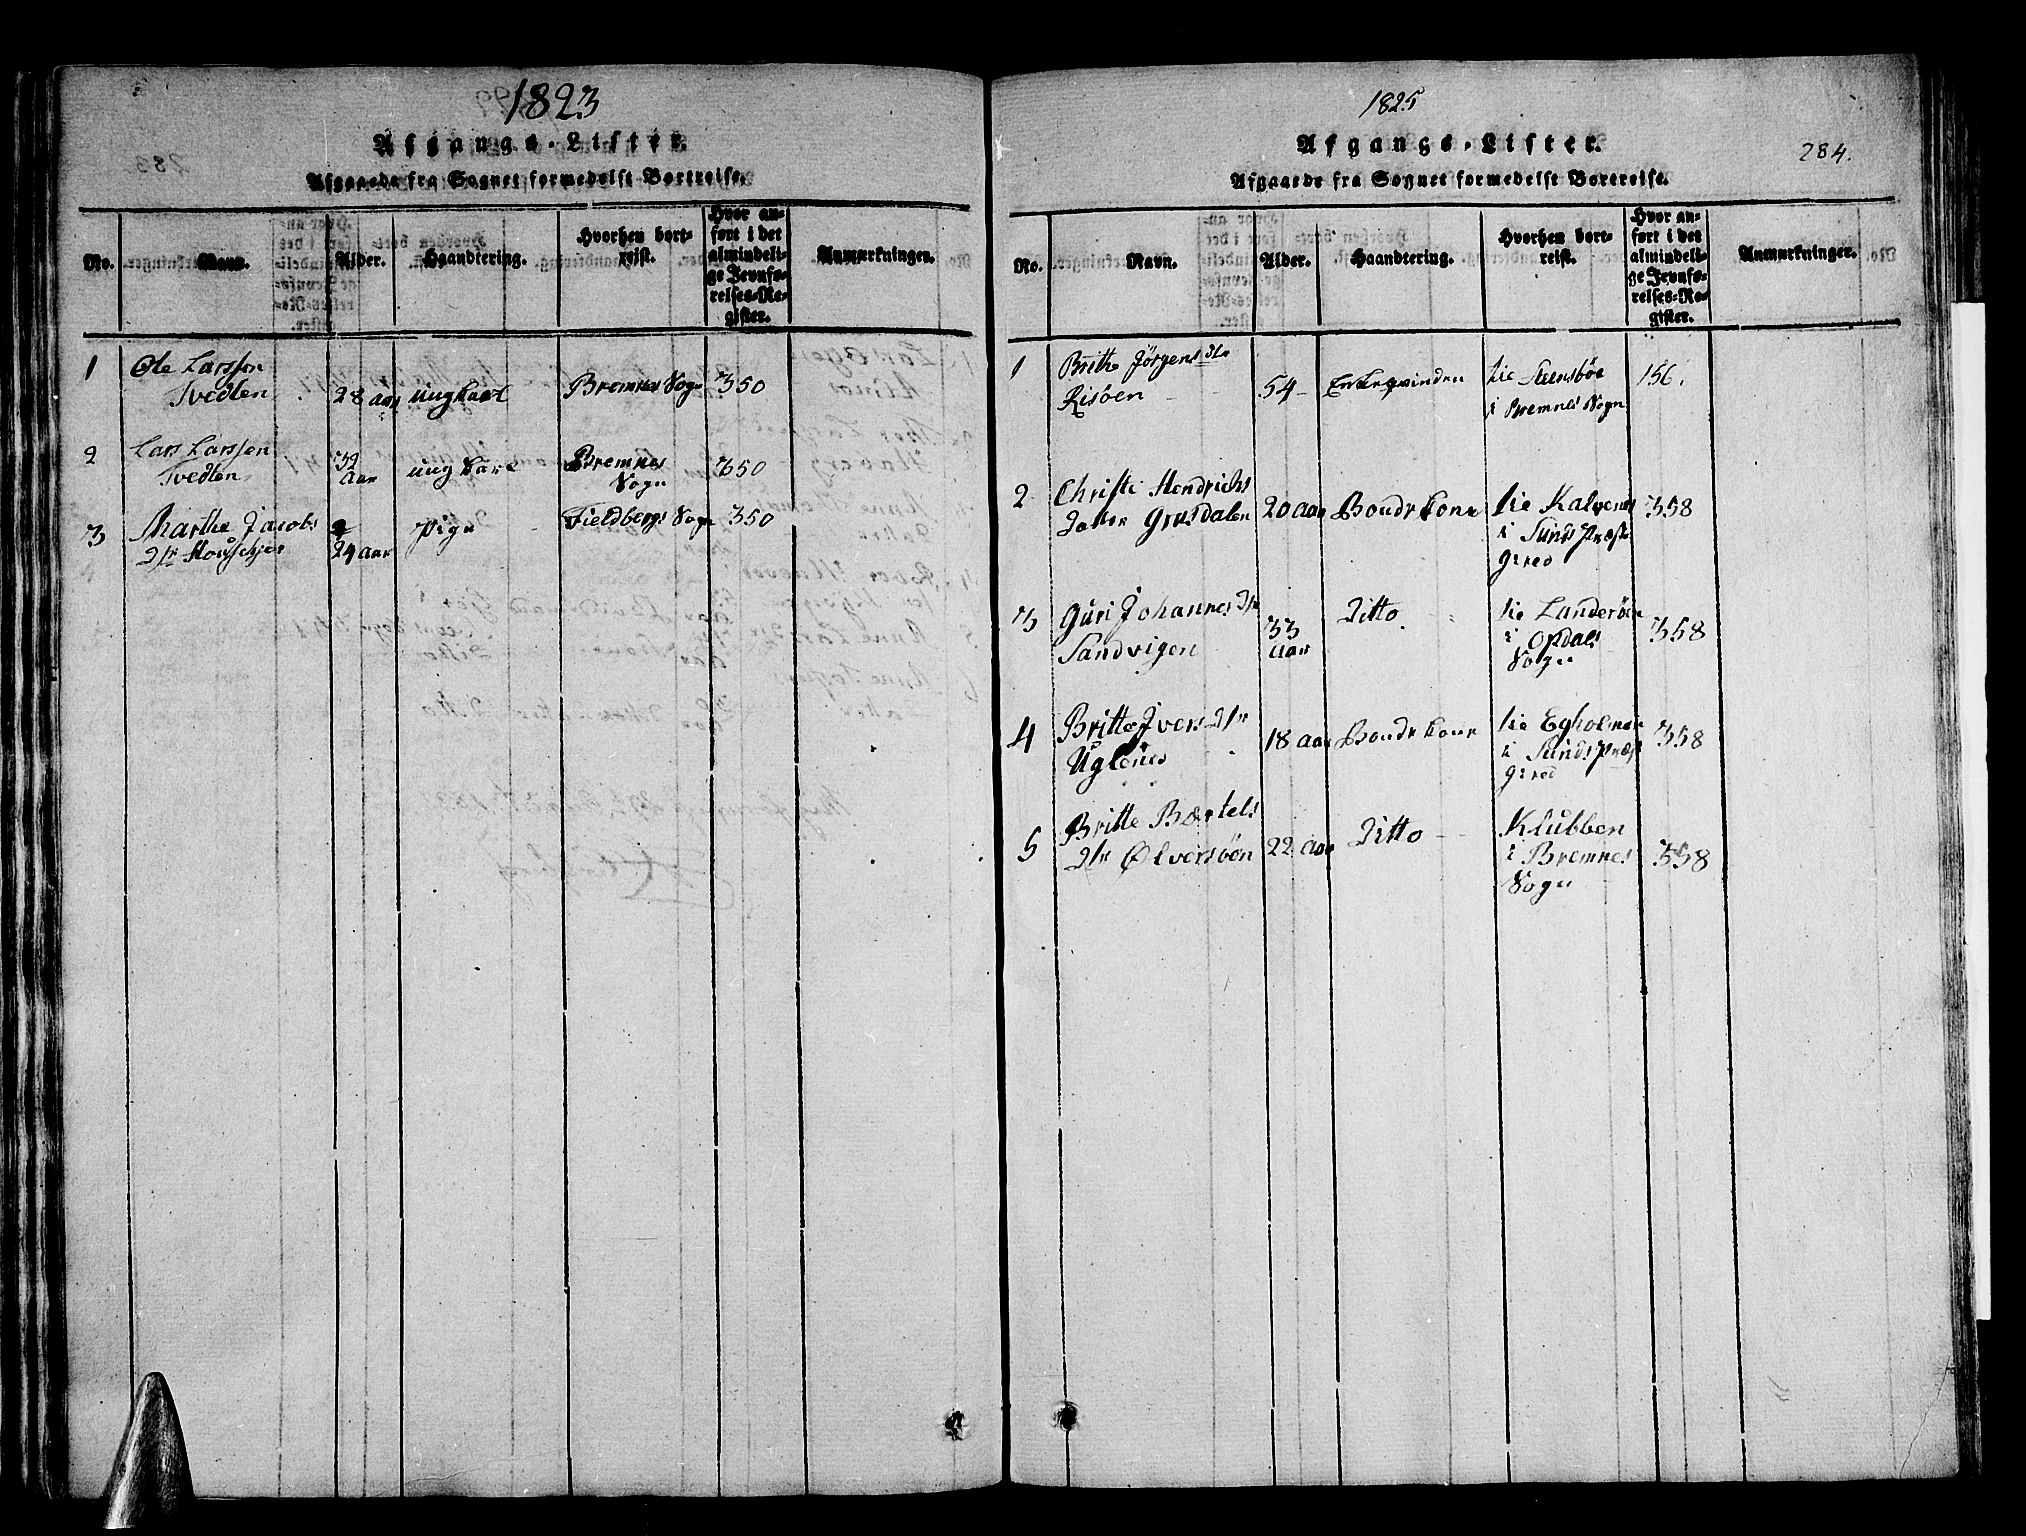 1823
Afgangs-Lister.
Afgaaede fra Sognet formedelst Bortreise.
No.
Navn.
Alder.
Haandtering.
Hvorhen bort-
reist.
Hvor an-
ført i det
almindeli-
ge Jevnfø-
relses-Re-
gister.
Anmærkninger.
1 Ole Larssen
Tvedten 28 aar ungkarl Bremnes Sogn 350
2 Lars Larssen
Tvedten 32
Aar ungkarl Bremnes
Sogn 350
3 Marthe Jacobs
Dtr 24 aar Pige Fieldbergs Sogn 350
1825
284.
Afgangs-Lister.
Afgaaede fra Sognet formedelst Bortreise.
No.
Navn.
Alder.
Haandtering.
Hvorhen bort-
reist.
Hvor an-
ført i det
almindeli-
ge Jevnfø-
relses-Re-
gister.
Anmærkninger.
1 Brithe Jörgens Dtr
Risöen 54 Enkeqvinden tie Steensböe
i Bremnes Sogn 156.
2 Christi Hendrichs
Datter Grusdalen 20 aar Bondekone tie Kalvenes
i Sunds Præste
gield 358
3 Guri Johannes Dtr
Sandvigen 33
aar Ditto tie Landeröen
i Opdals
Sogn 358
4 Britte Ivers Dtr
Uglenes 18 aar Bondekone tie Egholmen
i Sunds Præst
gield 358
5 Britte Bærtels
Dtr Ølversöen 22 Aar Ditto Klubben
i Bremnes
Sogn 358